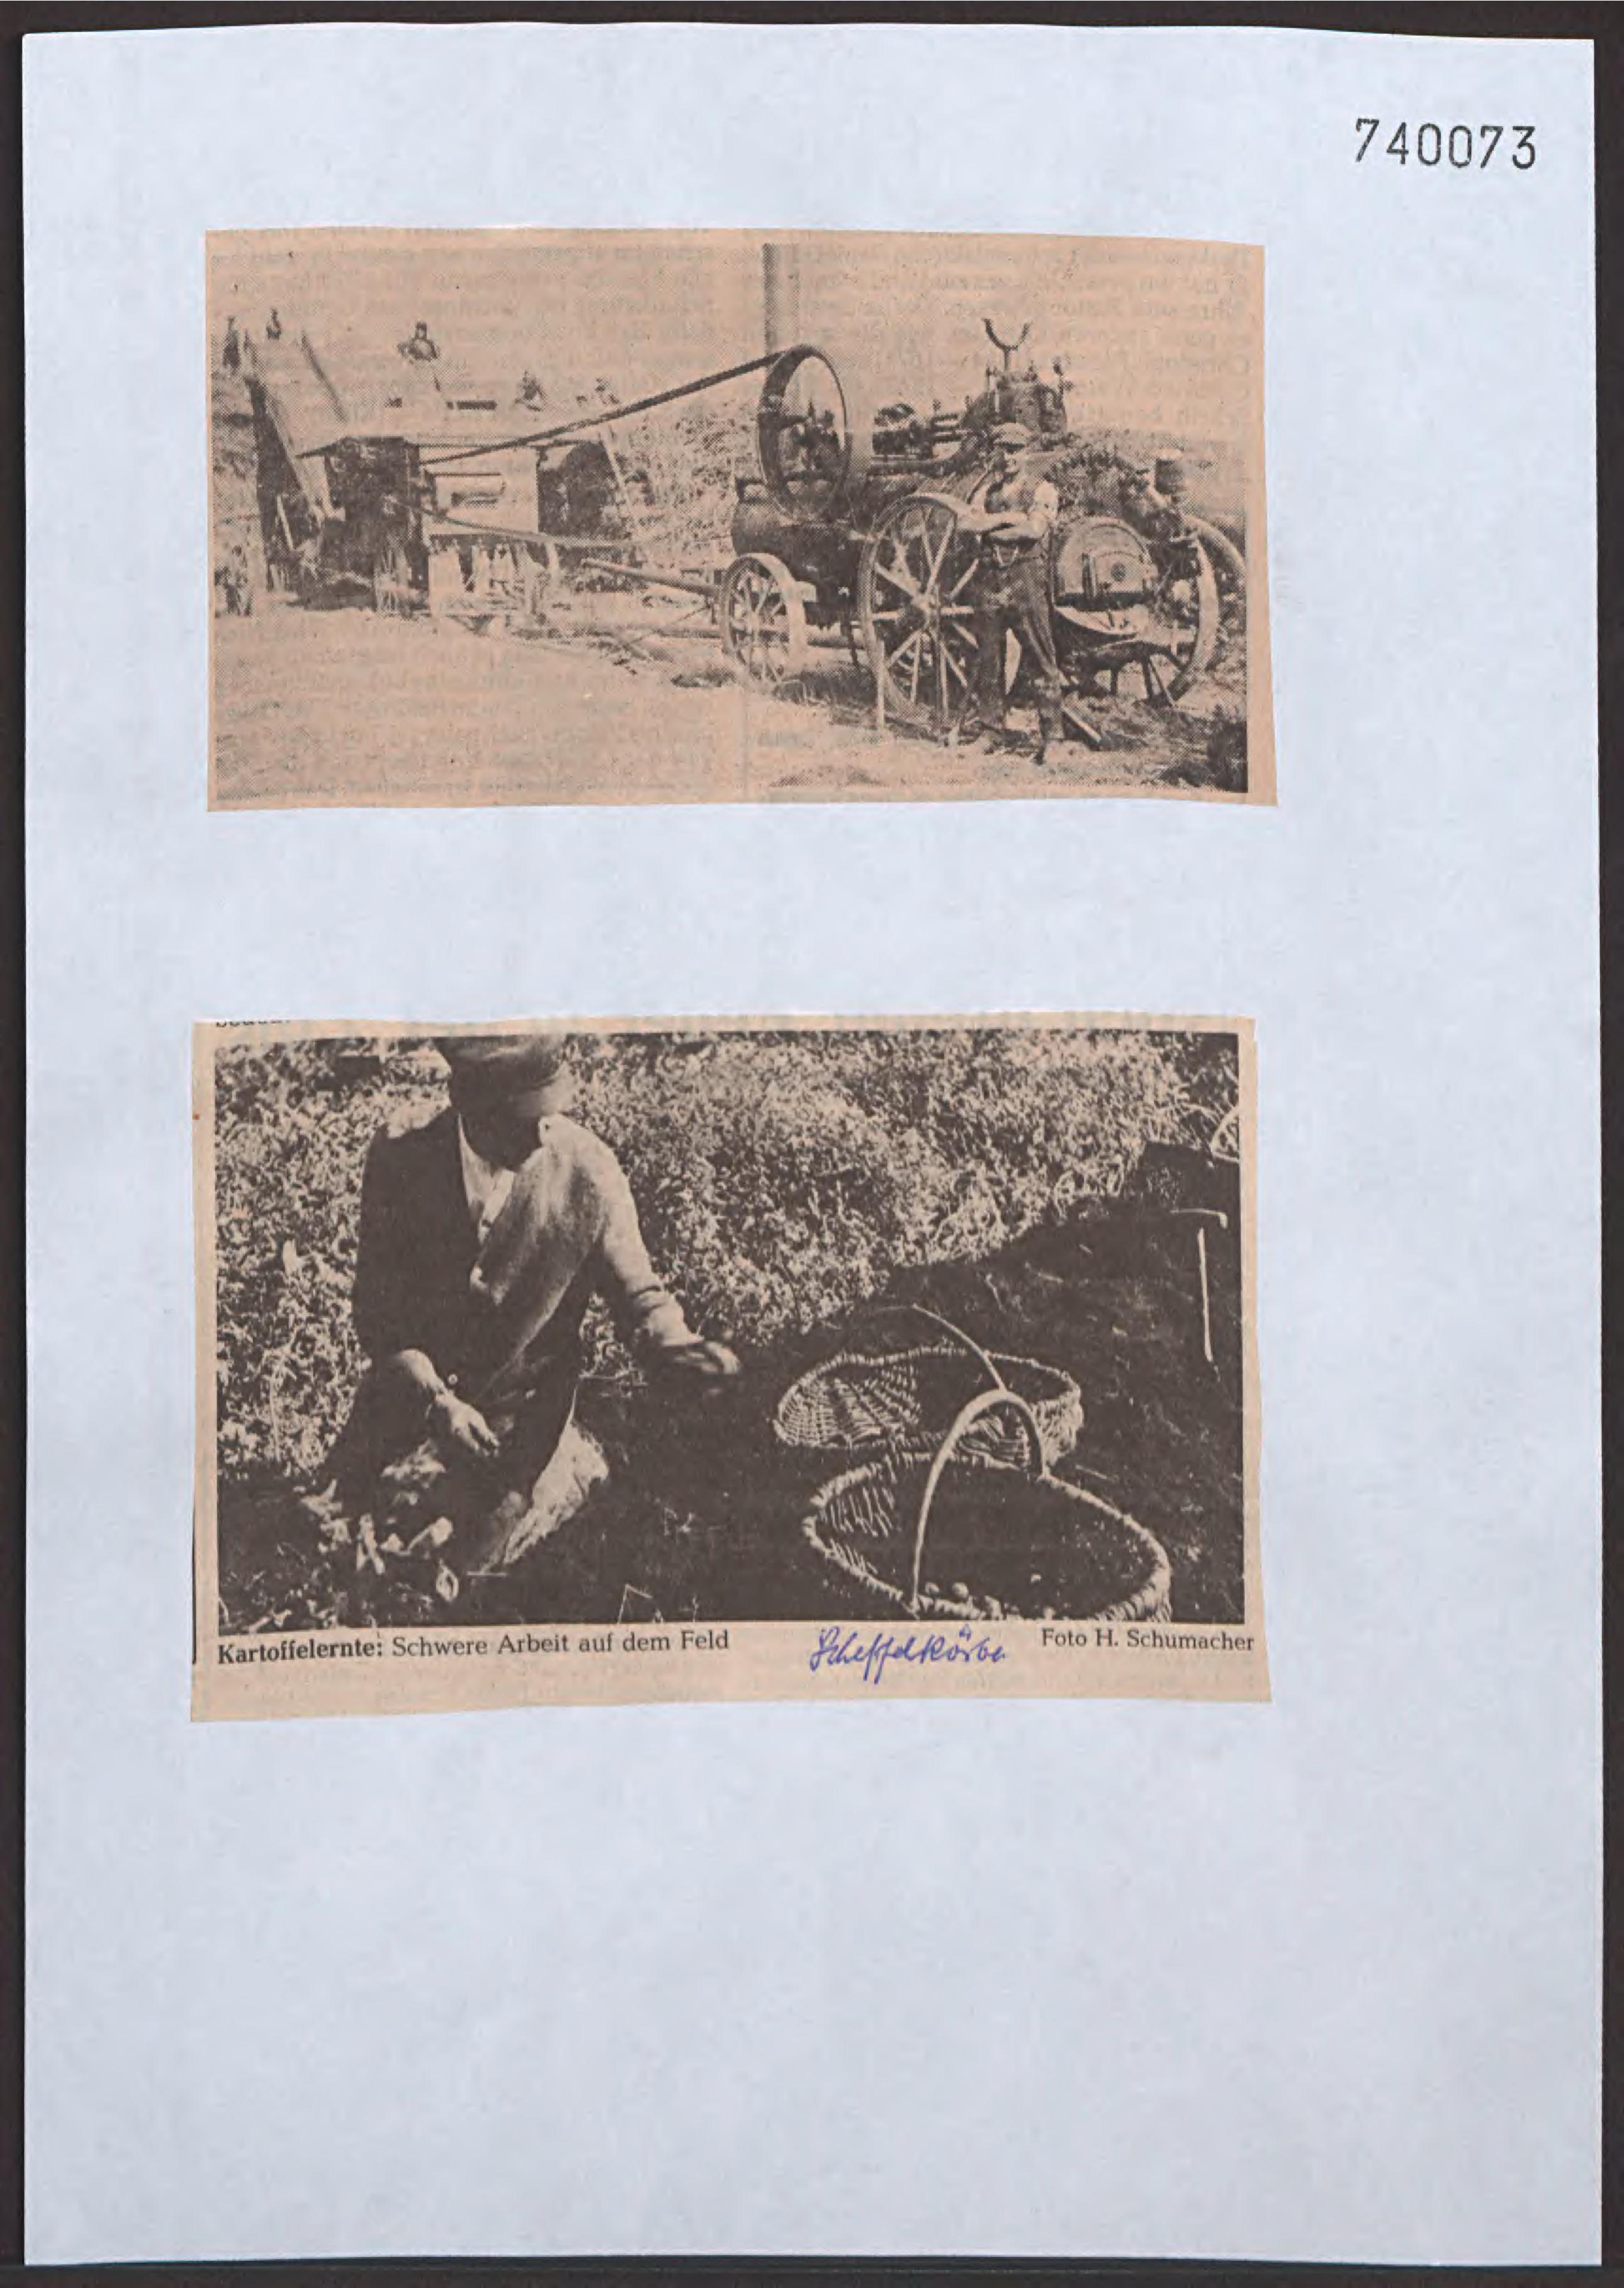 740073
Kartoffelernte: Schwere Arbeit auf dem Feld
Scheffelkörbe
Foto H. Schumacher